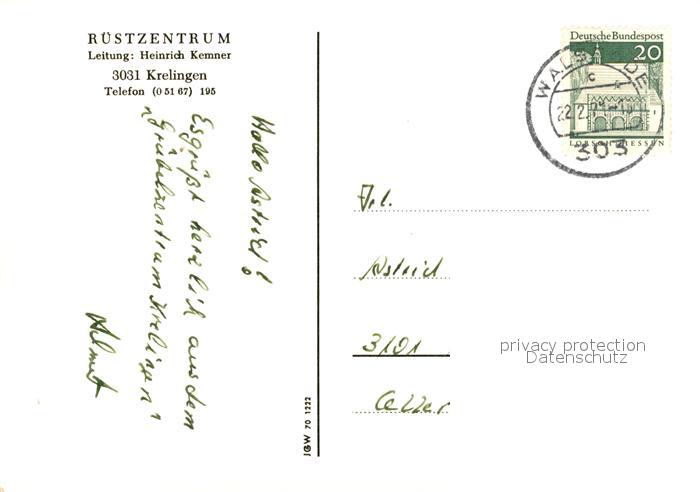 RÜSTZENTRUM
Leitung: Heinrich Kemner
3031 Krelingen
Telefon (0 51 67) 195
Hallo Astrid!
Es grüßt herzlich aus dem
„Grübelzentrum Krelingen"
Helmut
JGW 70 1222
Deutsche Bundespost
20
LORSCH/HESSEN
WALSRODE
c
22.2.
303
Frl.
Astrid
3101
privacy protection
Datenschutz